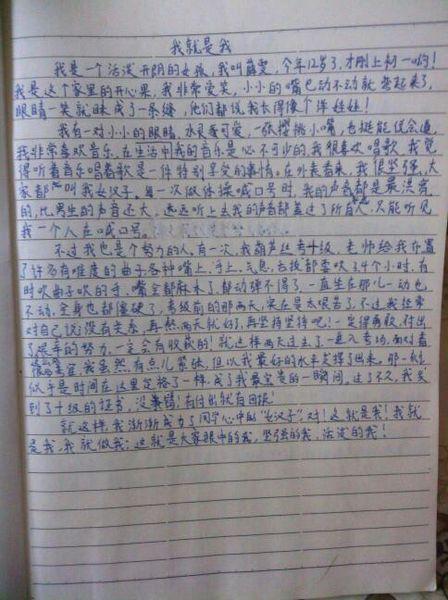 我就是我
我是一个活泼开朗的女孩,我叫薛雯,今年12岁了,才刚上初一哟!
我是这个家里的开心果,我非常爱笑,小小的嘴巴动不动就翘起来了,
眼睛一笑就眯成了一条缝,他们都说我长得像个洋娃娃!
我有一对小小的眼睛,水灵可爱,一张樱桃小嘴,也挺能说会道,
我非常喜欢音乐,在生活中我的音乐是必不可少的,我很喜欢唱歌,我觉
得听着音乐唱着歌是一件特别享受的事情。在外表看来,我很坚强,大
家都叫我女汉子。每一次做体操喊口号时,我的声音都是最洪亮
的,比男生的声音还大,远远听上去我的声音都盖过了所有人,只能听见
我一个人在喊口号。
不过我也是个努力的人,有一次,我葫芦丝考十级,老师给我布置
了许多有难度的曲子,各种嘴上、手上、气息、都要吹3、4个小时,有
时吹曲子吹的手、嘴全都麻木了,都动弹不得了,一直坐在那儿一动也
不动,全身也都僵硬了,考级前的那两天,实在是太艰苦了,不过我经常
对自己说:没有关系,再熬两天就好,再坚持坚持吧!一定得勇敢,付出
了艰辛的努力,一定会有收获的!就这样两天过去了,一进入考场,面对着
评委,我虽然有点儿紧张,但以我最好的水平发挥了出来。那一刻
似乎是时间在这里定格了一样,成了我最宝贵的一瞬间。过了不久,我拿
到了十级的证书,没错,有付出就有回报!
就这样,我渐渐成为了同学心中的“女汉子”,对!这就是我!我就
是我,我就做我;这就是大家眼中的我,坚强的我,活泼的我!